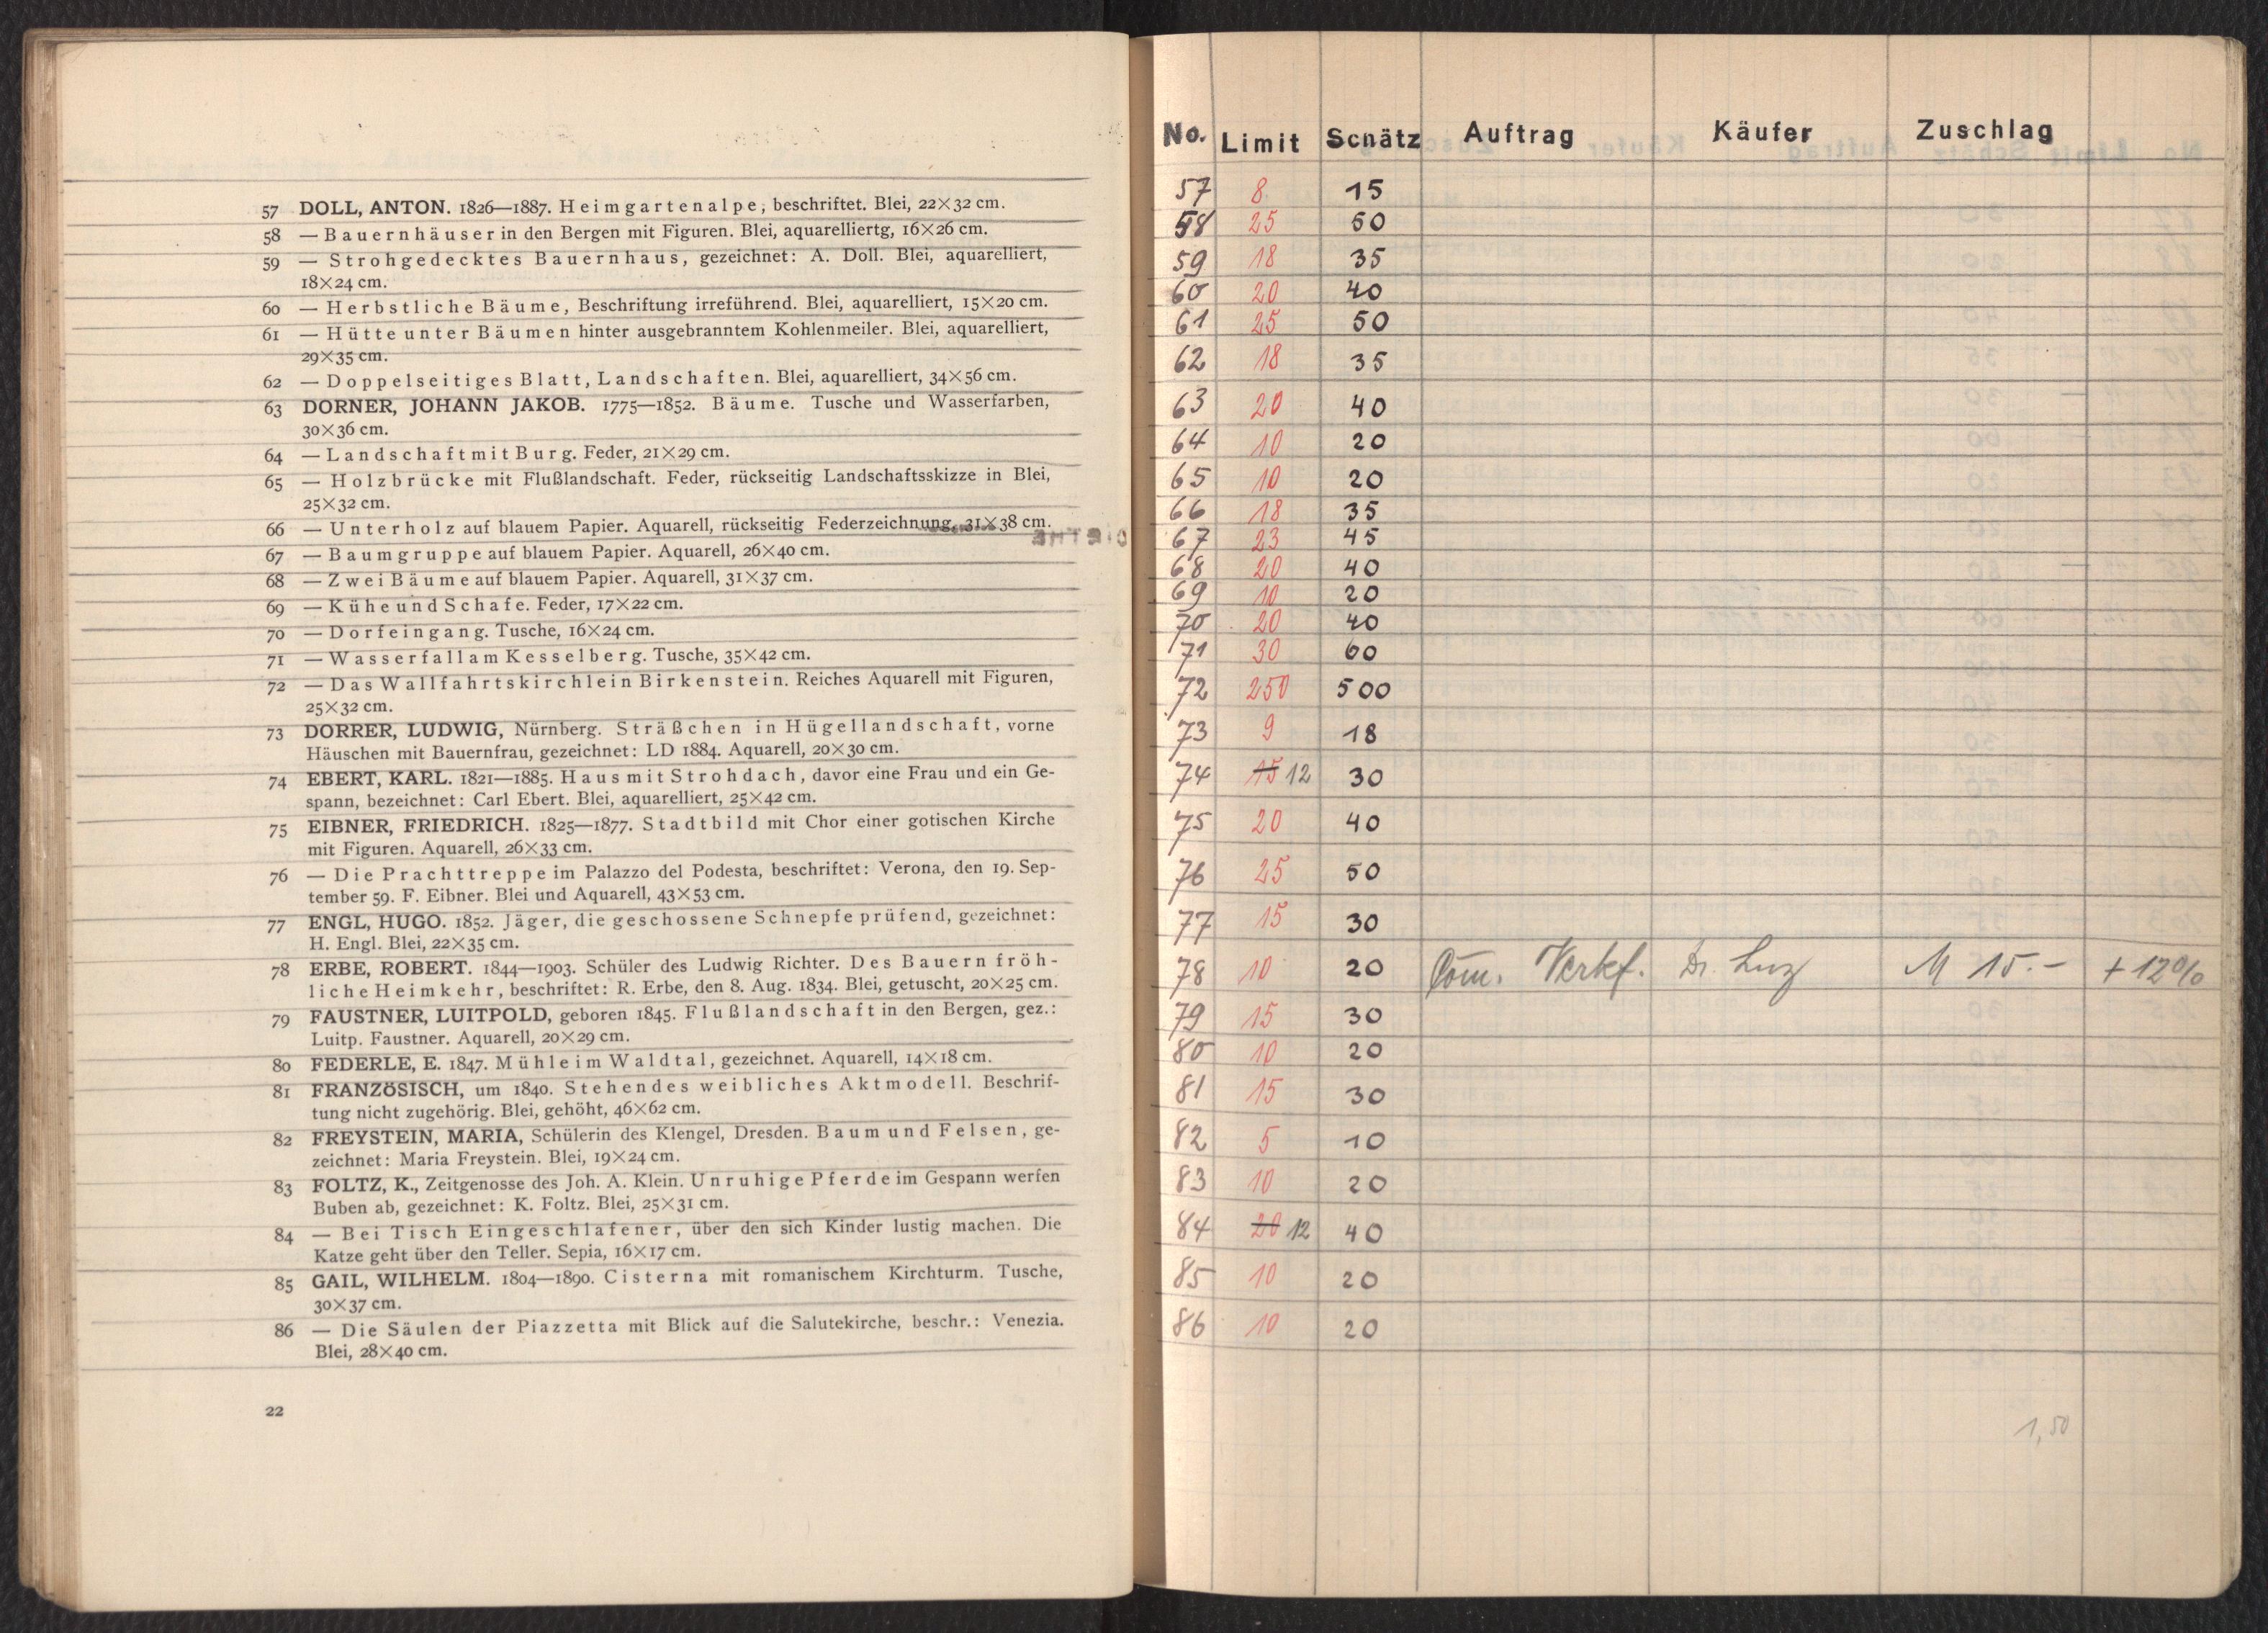 57 DOLL, ANTON. 1826—1887. Heimgartenalpe, beschriftet. Blei, 22×32 cm.
58 — Bauernhäuser in den Bergen mit Figuren. Blei, aquarelliertg, 16×26 cm.
59 — Strohgedecktes Bauernhaus, gezeichnet: A. Doll. Blei, aquarelliert,
18×24 cm.
60 — Herbstliche Bäume, Beschriftung irreführend. Blei, aquarelliert, 15×20 cm.
61 — Hütte unter Bäumen hinter ausgebranntem Kohlenmeiler. Blei, aquarelliert,
29×35 cm.
62 — Doppelseitiges Blatt, Landschaften. Blei, aquarelliert, 34×56 cm.
63 DORNER, JOHANN JAKOB. 1775—1852. Bäume. Tusche und Wasserfarben,
30×36 cm.
64 — Landschaft mit Burg. Feder, 21×29 cm.
65 — Holzbrücke mit Flußlandschaft. Feder, rückseitig Landschaftsskizze in Blei,
25×32 cm.
66 — Unterholz auf blauem Papier. Aquarell, rückseitig Federzeichnung, 31×38 cm.
67 — Baumgruppe auf blauem Papier. Aquarell, 26×40 cm.
68 — Zwei Bäume auf blauem Papier. Aquarell, 31×37 cm.
69 — Kühe und Schafe. Feder, 17×22 cm.
70 — Dorfeingang. Tusche, 16×24 cm.
71 — Wasserfall am Kesselberg. Tusche, 35×42 cm.
72 — Das Wallfahrtskirchlein Birkenstein. Reiches Aquarell mit Figuren,
25×32 cm.
73 DORRER, LUDWIG, Nürnberg. Sträßchen in Hügellandschaft, vorne
Häuschen mit Bauernfrau, gezeichnet: LD 1884. Aquarell, 20×30 cm.
74 EBERT, KARL. 1821—1885. Haus mit Strohdach, davor eine Frau und ein Ge-
spann, bezeichnet: Carl Ebert. Blei, aquarelliert, 25×42 cm.
75 EIBNER, FRIEDRICH. 1825—1877. Stadtbild mit Chor einer gotischen Kirche
mit Figuren. Aquarell, 26×33 cm.
76 — Die Prachttreppe im Palazzo del Podesta, beschriftet: Verona, den 19. Sep-
tember 59. F. Eibner. Blei und Aquarell, 43×53 cm.
77 ENGL, HUGO. 1852. Jäger, die geschossene Schnepfe prüfend, gezeichnet:
H. Engl. Blei, 22×35 cm.
78 ERBE, ROBERT. 1844—1903. Schüler des Ludwig Richter. Des Bauern fröh-
liche Heimkehr, beschriftet: R. Erbe, den 8. Aug. 1834. Blei, getuscht, 20×25 cm.
79 FAUSTNER, LUITPOLD, geboren 1845. Flußlandschaft in den Bergen, gez.:
Luitp. Faustner. Aquarell, 20×29 cm.
80 FEDERLE, E. 1847. Mühle im Waldtal, gezeichnet. Aquarell, 14×18 cm.
81 FRANZÖSISCH, um 1840. Stehendes weibliches Aktmodell. Beschrif-
tung nicht zugehörig. Blei, gehöht, 46×62 cm.
82 FREYSTEIN, MARIA, Schülerin des Klengel, Dresden. Baum und Felsen, ge-
zeichnet: Maria Freystein. Blei, 19×24 cm.
83 FOLTZ, K., Zeitgenosse des Joh. A. Klein. Unruhige Pferde im Gespann werfen
Buben ab, gezeichnet: K. Foltz. Blei, 25×31 cm.
84 — Bei Tisch Eingeschlafener, über den sich Kinder lustig machen. Die
Katze geht über den Teller. Sepia, 16×17 cm.
85 GAIL, WILHELM. 1804—1890. Cisterna mit romanischem Kirchturm. Tusche,
30×37 cm.
86 — Die Säulen der Piazzetta mit Blick auf die Salutekirche, beschr.: Venezia.
Blei, 28×40 cm.
22
No. Limit Schätz Auftrag Käufer Zuschlag
57 8. 15
58 25 50
59 18 35
60 20 40
61 25 50
62 18 35
63 20 40
64 10 20
65 10 20
66 18 35
67 23 45
68 20 40
69 10 20
70 20 40
71 30 60
72 250 500
73 9 18
74 15 12 30
75 20 40
76 25 50
77 15 30
78 10 20 Com. Verkf. Dr. Luz M 15.- + 12%
79 15 30
80 10 20
81 15 30
82 5 10
83 10 20
84 20 12 40
85 10 20
86 10 20
1,50